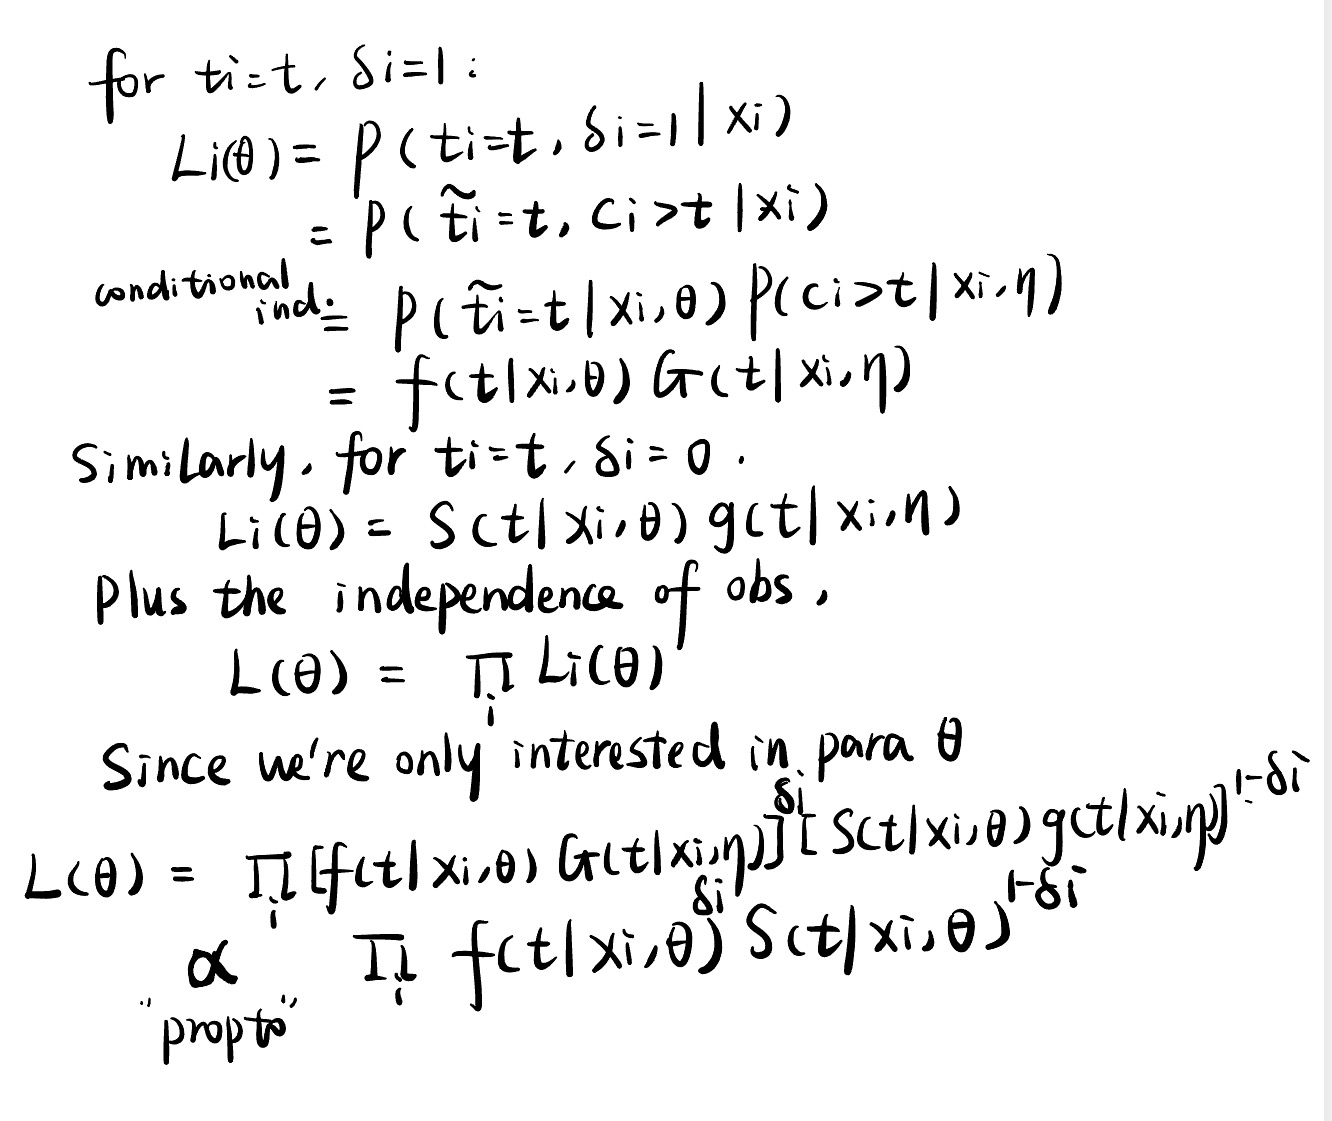 for ti=t, δi=1:
Li(θ) = P(ti=t, δi=1 | xi)
= P(t̃i=t, ci>t | xi)
conditional ind. = P(t̃i=t | xi, θ) P(ci>t | xi, η)
= f(t | xi, θ) G(t | xi, η)
Similarly, for ti=t, δi=0.
Li(θ) = S(t | xi, θ) g(t | xi, η)
Plus the independence of obs,
L(θ) = ∏i Li(θ)
Since we're only interested in para θ
L(θ) = ∏i [f(t | xi, θ) G(t | xi, η)]^δi [S(t | xi, θ) g(t | xi, η)]^1-δi
∝ ∏i f(t | xi, θ)^δi S(t | xi, θ)^1-δi
"propto"